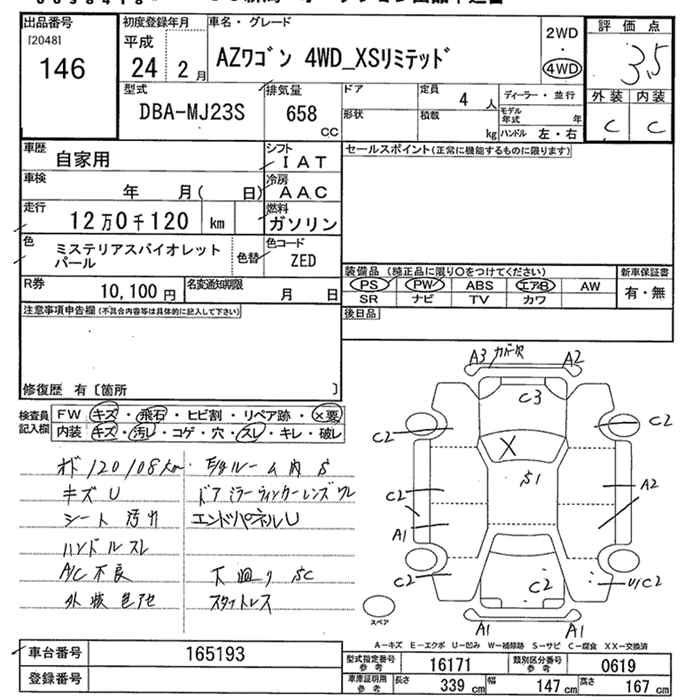 出品番号
[2048]
146
初度登録年月
平成
24 2月
車名・グレード
AZワゴン 4WD_XSリミテッド
2WD
・
4WD
評価点
3.5
外装 内装
C C
型式
DBA-MJ23S
排気量
658
CC
ドア
形状
定員
4 人
積載
kg
ディーラー・並行
モデル年式 年
ハンドル 左・右
車歴
自家用
シフト
I A T
車検
年 月( 日)
冷房
A A C
走行
12万0千120 km
燃料
ガソリン
色
ミステリアスバイオレット
パール
色替
色コード
ZED
R券
10,100 円
名変通知期限
月 日
セールスポイント(正常に機能するものに限ります)
装備品 (純正品に限り○をつけてください)
PS PW ABS エアB AW
SR ナビ TV カワ
新車保証書
有・無
後日品
注意事項申告欄(不具合内容等は具体的に記入して下さい)
修復歴 有〔箇所 〕
検査員
記入欄
FW キズ・飛石・ヒビ割・リペア跡・×要
内装 キズ・汚レ・コゲ・穴・スレ・キレ・破レ
120108km
キズU
シート 汚レ
ハンドルスレ
A/C不良
ルーム内 S
ドアミラーウィンカーレンズワレ
エンドパネルU
下廻り SC
A3 カバー欠 A2
C3
C2 C2
X
S1
C2 A2
A1
C2 C2 U/C2
A1 A1
スペア
A-キズ E-エクボ U-凹み W-補修跡 S-サビ C-腐食 XX-交換済
車台番号
165193
登録番号
型式指定番号
参考
16171
類別区分番号
参考
0619
車庫証明用
参考
長さ 339 cm 幅 147 cm 高さ 167 cm